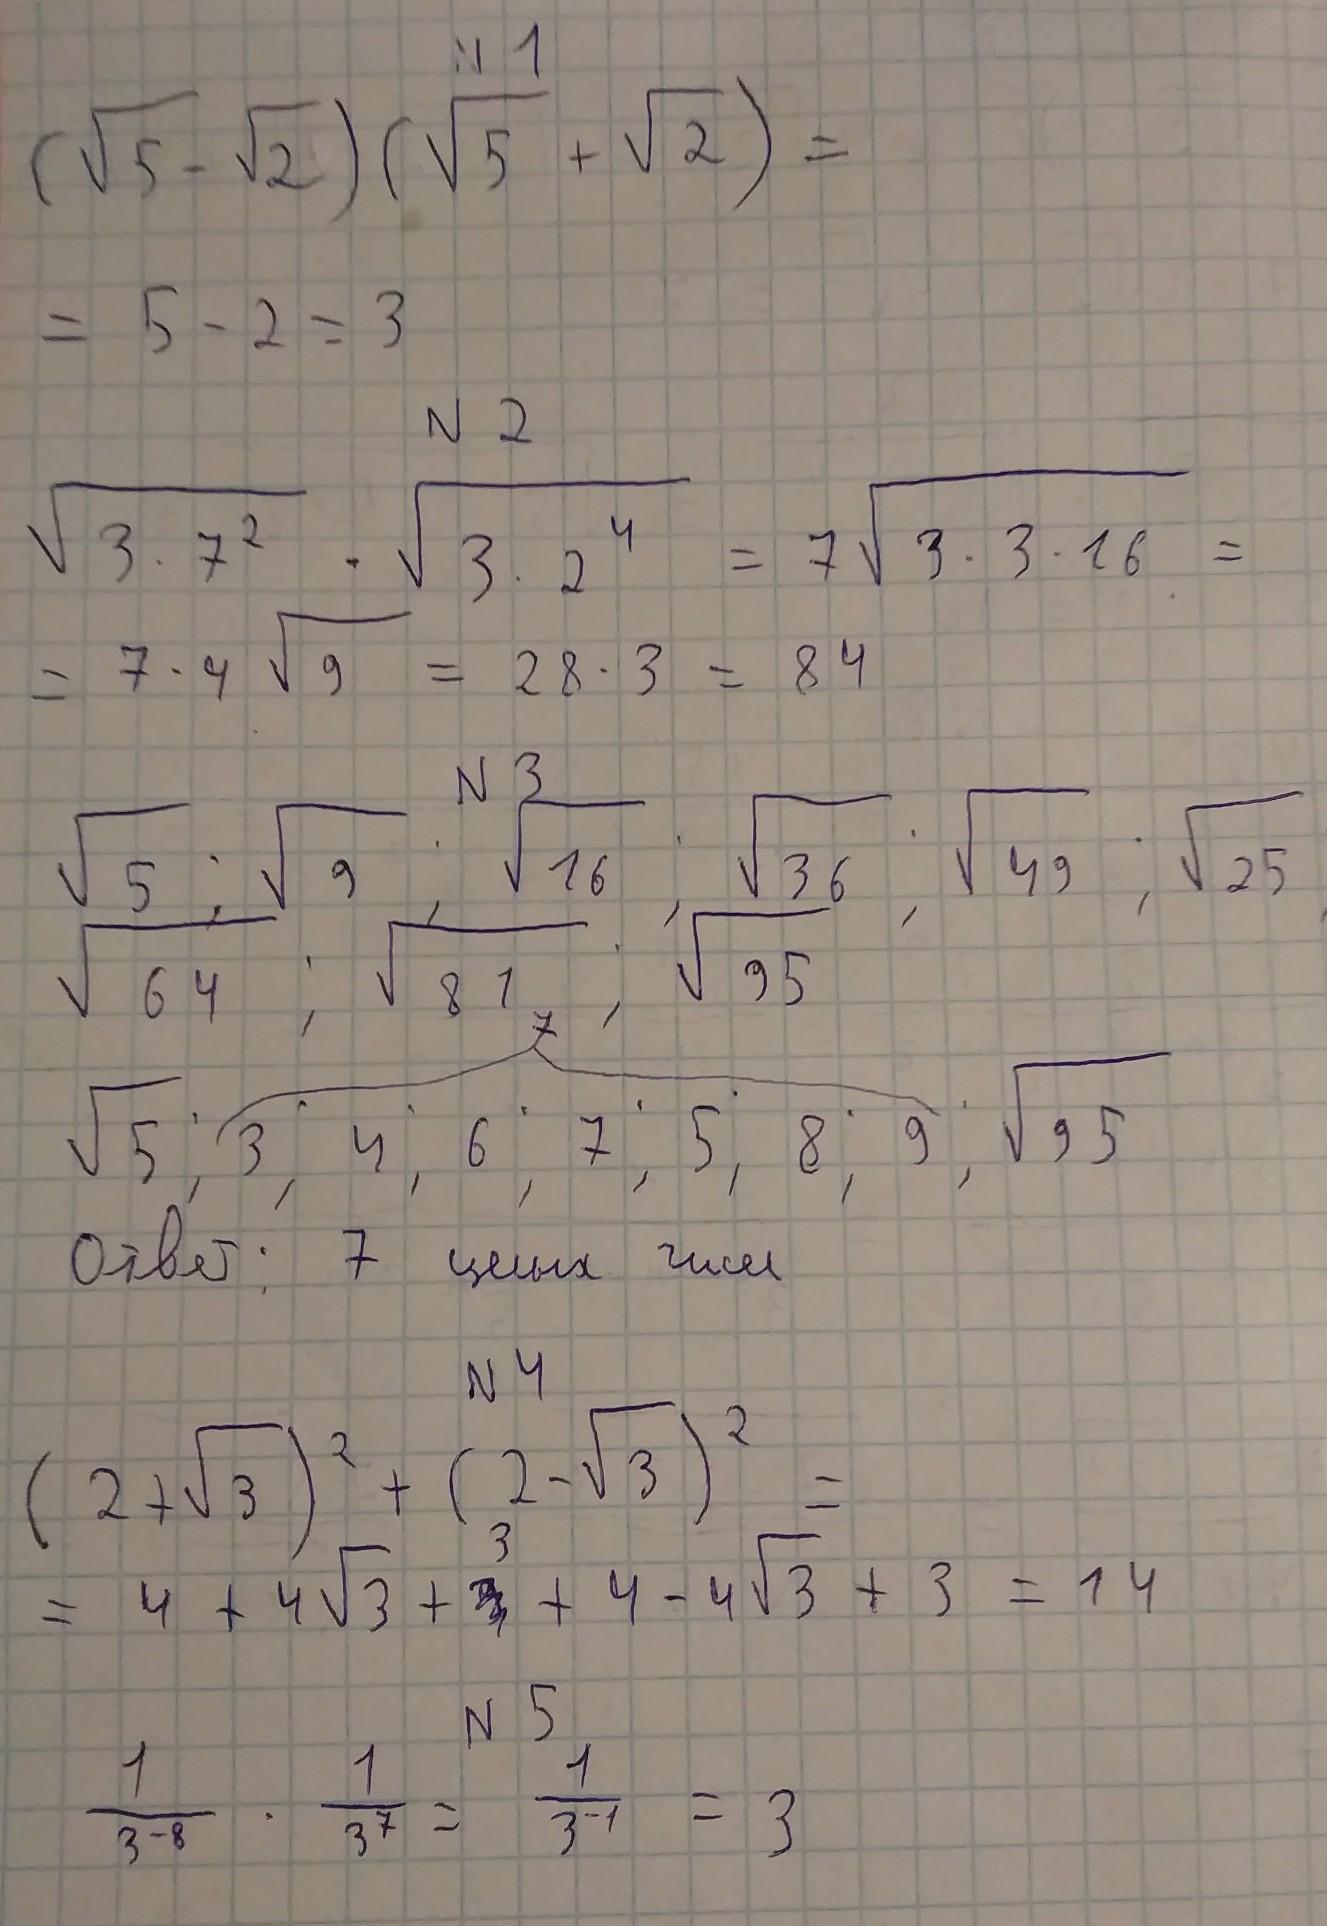 N 1
(√5 - √2)(√5 + √2) =
= 5 - 2 = 3
N 2
√3·7² · √3·2⁴ = 7√3·3·16 =
= 7·4√9 = 28·3 = 84
N 3
√5; √9; √16; √36; √49; √25;
√64; √81; √95
7
√5; 3; 4; 6; 7; 5; 8; 9; √95
Ответ: 7 целых чисел
N 4
(2+√3)² + (2-√3)² =
= 4 + 4√3 + 3 + 4 - 4√3 + 3 = 14
N 5
1/3⁻⁸ · 1/3⁷ = 1/3⁻¹ = 3